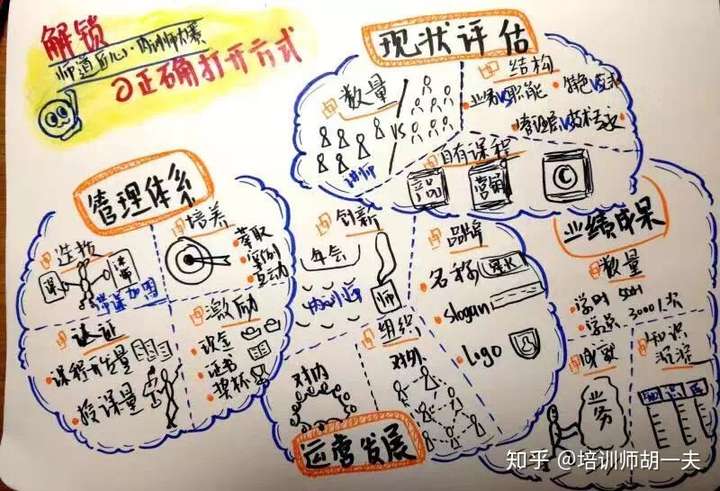 解锁
师道匠心·培训师大赛
の正确打开方式
现状评估
数量
VS
讲师
结构
业务VS职能
特色VS技术
管理层VS技术专家
自有课程
产品
营销
C
管理体系
选拔
课
带
培养
萃取
案例
互动
认证
课程开发量
授课量
激励
现金
证书
奖杯
运营发展
创新
年会
内训师
师
品牌
名称
slogan
Logo
组织
对内
对外
业绩成果
数量
学时 50H
学员 3000人次
贡献
业务
知识
沉淀
知乎 @培训师胡一夫